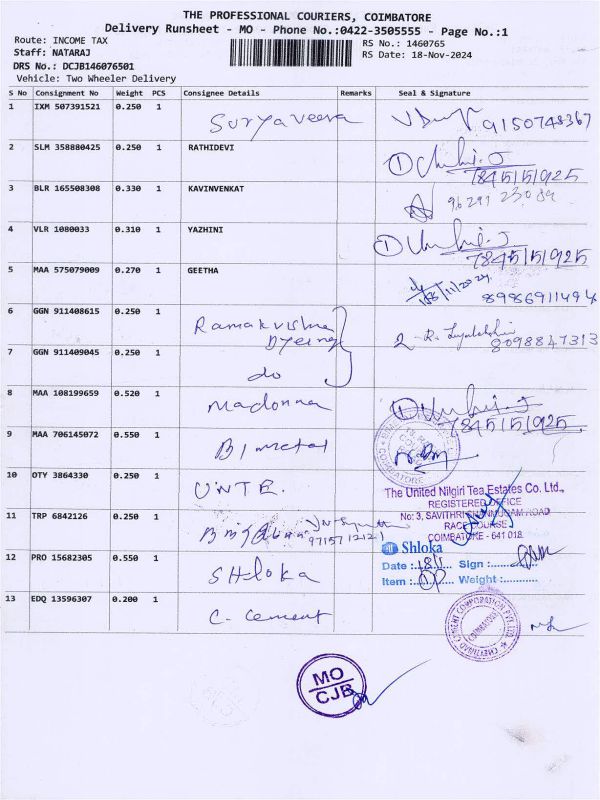 THE PROFESSIONAL COURIERS, COIMBATORE
Delivery Runsheet - MO - Phone No.:0422-3505555 - Page No.:1
Route: INCOME TAX RS No.: 1460765
Staff: NATARAJ RS Date: 18-Nov-2024
DRS No.: DCJB146076501
Vehicle: Two Wheeler Delivery
S No Consignment No Weight PCS Consignee Details Remarks Seal & Signature
1 IXM 507391521 0.250 1 Suryaveera 9150748367
2 SLM 358880425 0.250 1 RATHIDEVI 1
7845151925
3 BLR 165508308 0.330 1 KAVINVENKAT 96297 23089
4 VLR 1080033 0.310 1 YAZHINI 1
7845151925
5 MAA 575079009 0.270 1 GEETHA 18/11/2024 8986911494
6 GGN 911408615 0.250 1 Ramakrishna
Dyeing 2 - R. 8098847313
7 GGN 911409045 0.250 1 do
8 MAA 108199659 0.520 1 Madonna 1
7845151925
9 MAA 706145072 0.550 1 Bimetal
COIMBATORE
10 OTY 3864330 0.250 1 UNTE.
The United Nilgiri Tea Estates Co. Ltd.,
REGISTERED OFFICE
No: 3, SAVITHRI SHANMUGAM ROAD
RACE COURSE
COIMBATORE - 641 018.
11 TRP 6842126 0.250 1 9715712121
12 PRO 15682305 0.550 1 SHloka
Shloka
Date :18/11 Sign :
Item : Weight :
13 EDQ 13596307 0.200 1 C. Cement
CHETTINAD CEMENT CORPORATION PVT. LTD.
COIMBATORE
MO
CJB